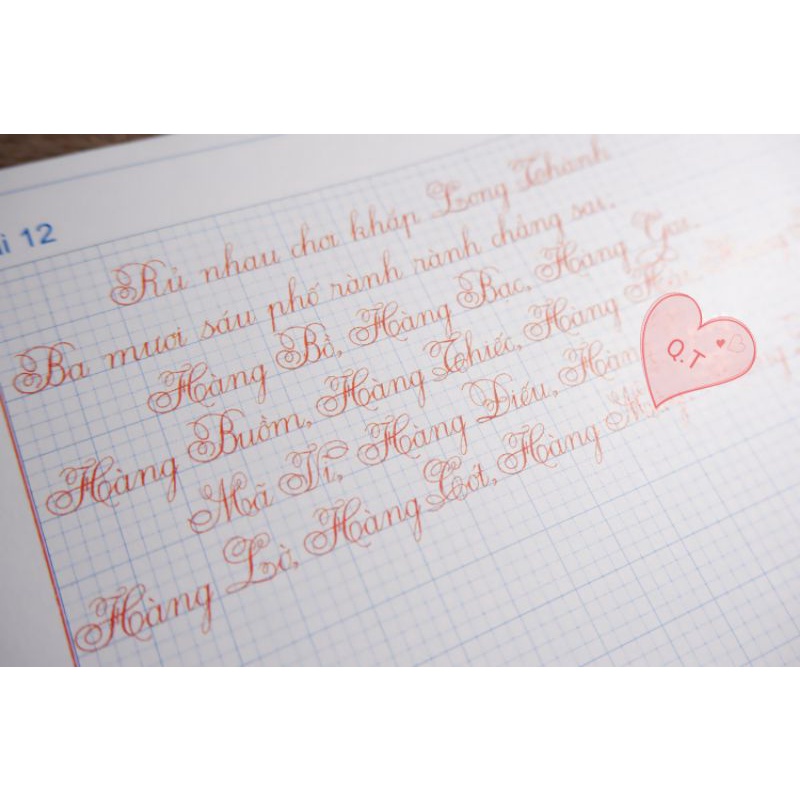 ài 12
Rủ nhau chơi khắp Long Thành
Ba mươi sáu phố rành rành chẳng sai.
Hàng Bồ, Hàng Bạc, Hàng Gai
Hàng Buồm, Hàng Thiếc, Hàng
Mã Vĩ, Hàng Điếu,
Hàng Lờ, Hàng Cót, Hàng
Q.T